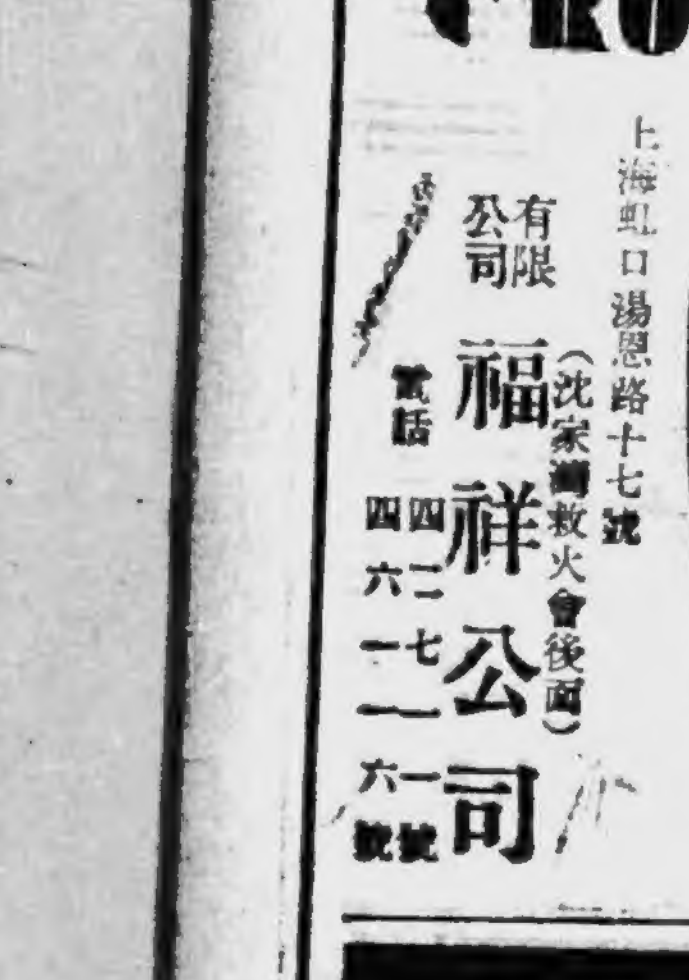 RO
上海虹口湯恩路十七號
(沈家灣救火會後面)
有限公司
福祥公司
電話
四二七一一號
四六一一六號